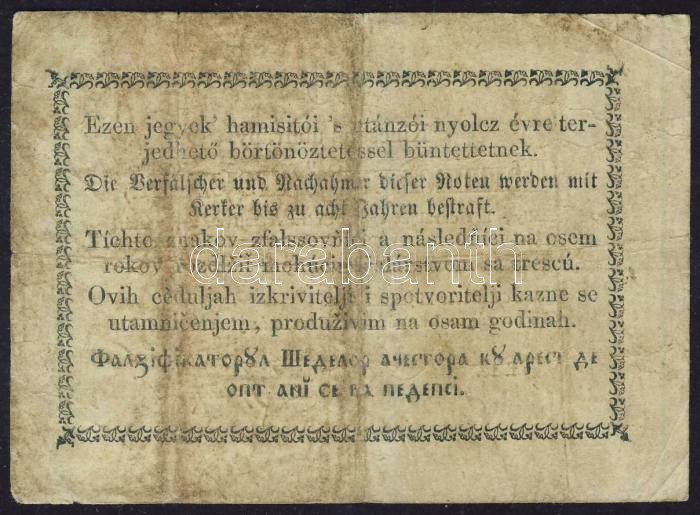 Ezen jegyek' hamisitói 's utánzói nyolcz évre ter-
jedhető börtönöztetéssel büntettetnek.
Die Verfälscher und Nachahmer dieser Noten werden mit
Kerker bis zu acht Jahren bestraft.
Tíchto znakov zfalssovníci a následníci na osem
rokov
sa trescú.
darabanth
Ovih cèduljah izkrivitelji i spotvoritelji kazne se
utamničenjem, produživim na osam godinah.
Фалꙁіфікаторꙋл Шеделор ачестора кꙋ арест де
опт анĭ се ва педепсі.